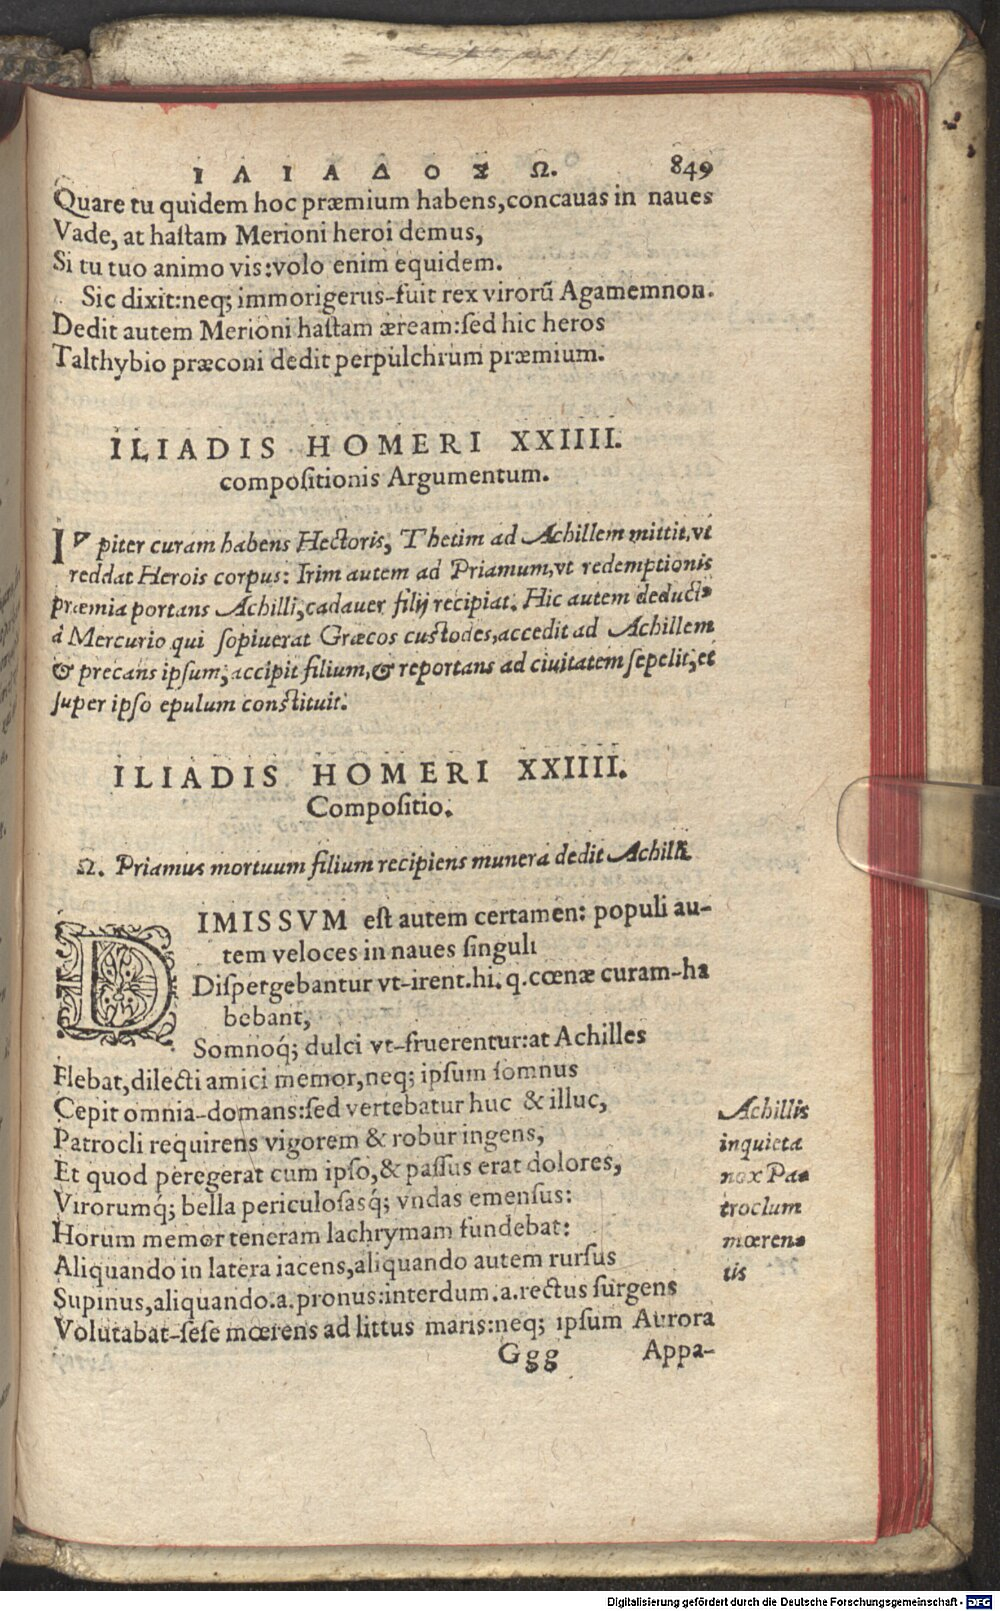 ΙΛΙΑΔΟΣ Ω. 849
Quare tu quidem hoc præmium habens, concauas in naues
Vade, at haſtam Merioni heroi demus,
Si tu tuo animo vis: volo enim equidem.
Sic dixit: neq; immorigerus-fuit rex viroru͂ Agamemnon.
Dedit autem Merioni haſtam æream: ſed hic heros
Talthybio præconi dedit perpulchrum præmium.
ILIADIS HOMERI XXIIII.
compoſitionis Argumentum.
IVpiter curam habens Hectoris, Thetim ad Achillem mittit, vt
reddat Herois corpus: Irim autem ad Priamum, vt redemptionis
præmia portans Achilli, cadauer filij recipiat. Hic autem deduct9
à Mercurio qui ſopiuerat Græcos cuſtodes, accedit ad Achillem
& precans ipſum, accipit filium, & reportans ad ciuitatem ſepelit, et
ſuper ipſo epulum conſtituit.
ILIADIS HOMERI XXIIII.
Compoſitio.
Ω. Priamus mortuum filium recipiens munera dedit Achilli.
DIMISSVM eſt autem certamen: populi au-
tem veloces in naues ſinguli
Diſpergebantur vt-irent. hi. q. cœnæ curam-ha
bebant,
Somnoq́; dulci vt-fruerentur: at Achilles
Flebat, dilecti amici memor, neq; ipſum ſomnus
Cepit omnia-domans: ſed vertebatur huc & illuc,
Patrocli requirens vigorem & robur ingens,
Et quod peregerat cum ipſo, & paſſus erat dolores,
Virorumq́; bella periculoſasq́; vndas emenſus:
Horum memor teneram lachrymam fundebat:
Aliquando in latera iacens, aliquando autem rurſus
Supinus, aliquando. a. pronus: interdum. a. rectus ſurgens
Volutabat-ſeſe mœrens ad littus maris: neq; ipſum Aurora
Achillis
inquieta
nox Pa-
troclum
mœren-
tis
Ggg Appa-
Digitalisierung gefördert durch die Deutsche Forschungsgemeinschaft - DFG